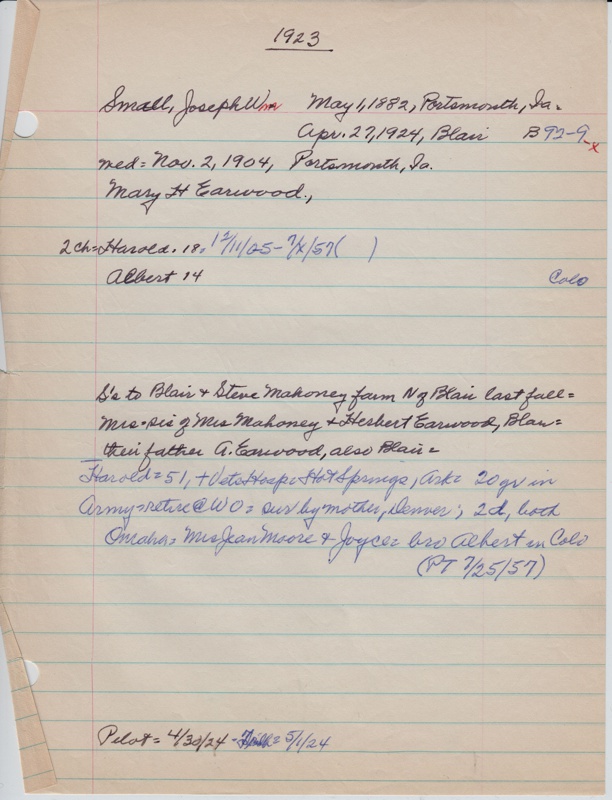 1923
Small, Joseph Wm May 1, 1882, Portsmouth, Ia.
Apr. 27, 1924, Blair B 92-9-x
med = Nov. 2, 1904, Portsmouth, Ia.
Mary H Earwood.,
2 ch = Harold. 18. 12/11/05 - 7/x/57 ( )
Albert 14 Colo
S's to Blair + Steve Mahoney farm N of Blair last fall =
Mrs = sis of Mrs Mahoney + Herbert Earwood, Blair =
their father A. Earwood, also Blair =
Harold = 51, + Vets Hosp = Hot Springs, Ark = 20 yr in
Army = retire CWO = sur by mother, Denver; 2 d, both
Omaha = Mrs Jean Moore & Joyce = bro Albert in Colo
(PT 7/25/57)
Pilot = 4/30/24 - = 5/1/24